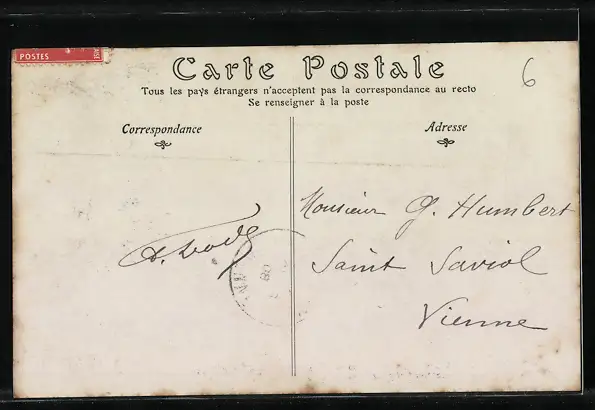 POSTES
6
Carte Postale
Tous les pays étrangers n'acceptent pas la correspondance au recto
Se renseigner à la poste
Correspondance
Adresse
Monsieur G. Humbert
Saint Saviol
Vienne